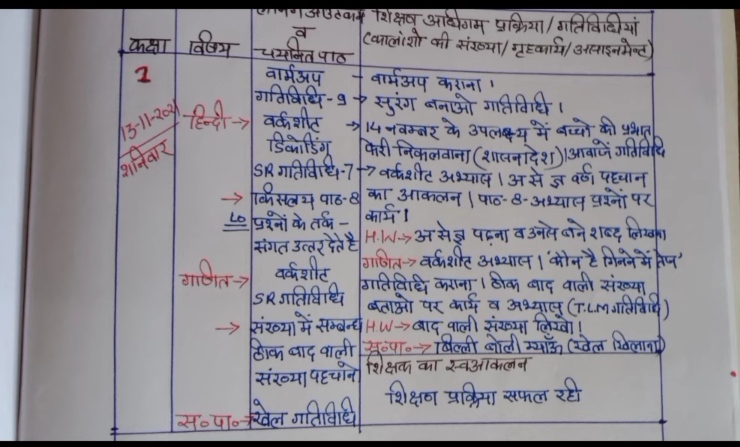 लर्निंग आउटकम शिक्षण अधिगम प्रक्रिया/गतिविधियां
कक्षा विषय व (कालांशो की संख्या/गृहकार्य/असाइनमेन्ट)
चयनित पाठ
1 वार्मअप - वार्मअप कराना।
गतिविधि-9 → सुरंग बनाओ गतिविधि।
13-11-2021 हिन्दी → वर्कशीट → 14 नवम्बर के उपलक्ष्य में बच्चो की प्रभात
शनिवार डिकोडिंग फेरी निकलवाना (शासनादेश)।आवाजें गतिविधि
SR गतिविधि-7 → वर्कशीट अभ्यास। अ से ज्ञ वर्ण पहचान
→ किसलय पाठ-8 का आकलन। पाठ-8-अभ्यास प्रश्नों पर
LO प्रश्नों के तर्क- कार्य।
संगत उत्तर देते है H.W→ अ से ज्ञ पढ़ना व उनसे बने शब्द लिखना
गणित→ वर्कशीट गणित→ वर्कशीट अभ्यास। 'कौन है गिनने में तेज'
SR गतिविधि गतिविधि कराना। ठीक बाद वाली संख्या
बताओ पर कार्य व अभ्यास (T.L.M गतिविधि)
→ संख्या में सम्बन्ध H.W→ बाद वाली संख्या लिखो।
ठीक बाद वाली स॰पा॰→ बिल्ली बोली म्याऊँ (खेल खिलाना)
संख्या पहचाने शिक्षक का स्वआकलन
शिक्षण प्रक्रिया सफल रही
स॰पा॰→ खेल गतिविधि